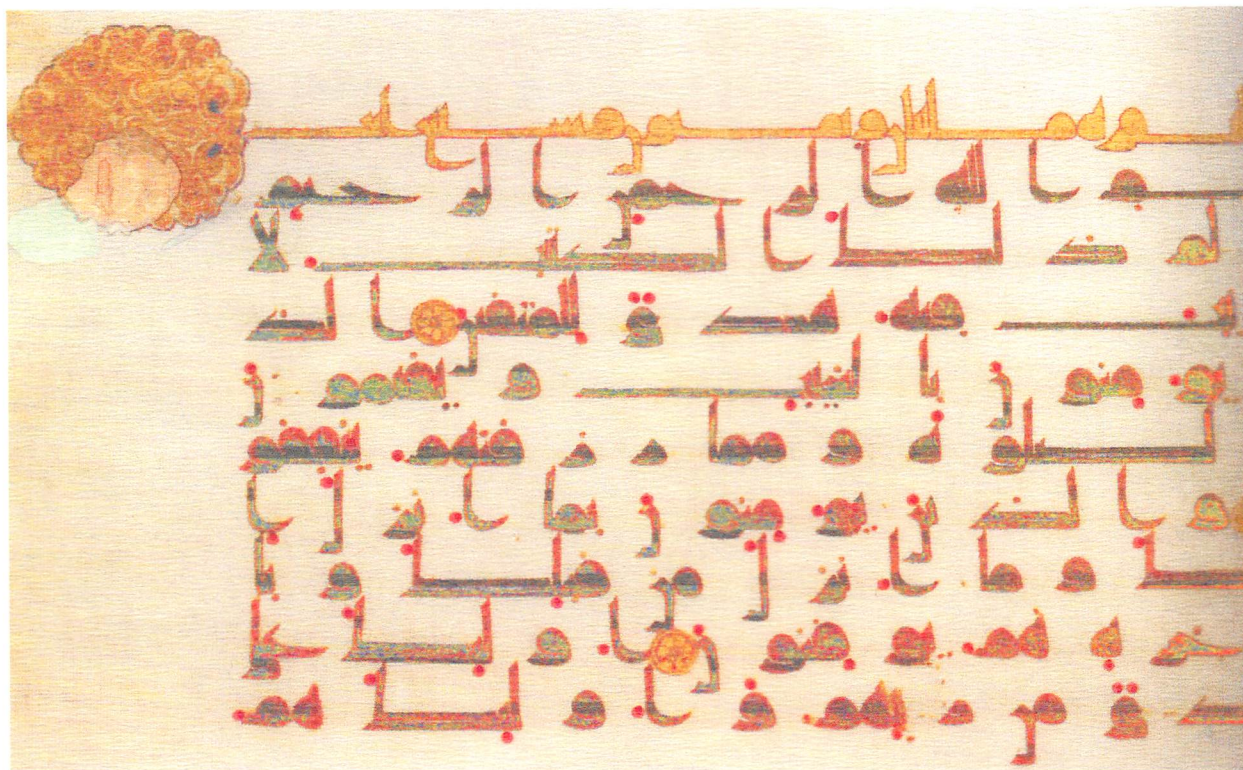 بسم الله الرحمن الرحيم
الم ذلك الكتب لا
ريب فيه هدى للمتقين الذ
ين يؤمنون بالغيب ويقيمون
الصلوة ومما رزقنهم ينفقو
ن والذين يؤمنون بما انزل ا
ليك وما انزل من قبلك وبا
لاخرة هم يوقنون اولئك على
هدى من ربهم واولئك هم